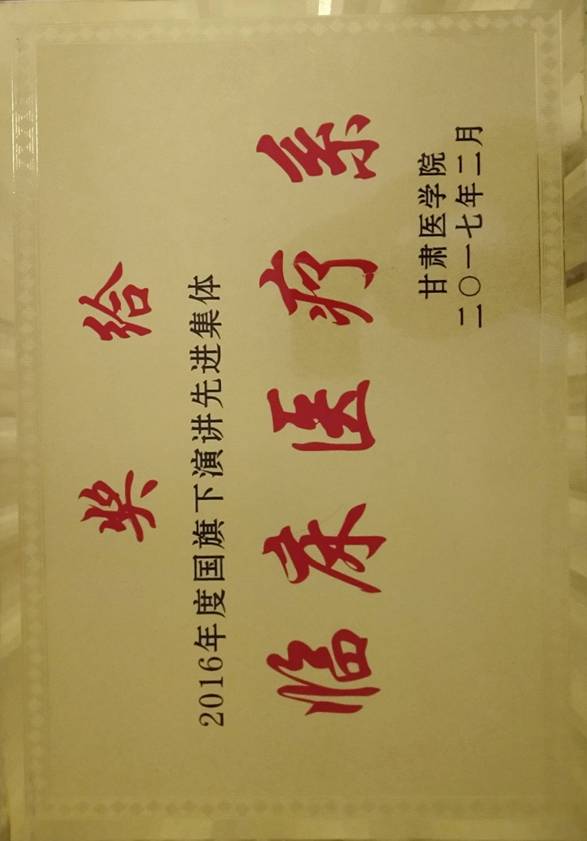 奖给
2016年度国旗下演讲先进集体
临床医疗系
甘肃医学院
二〇一七年二月